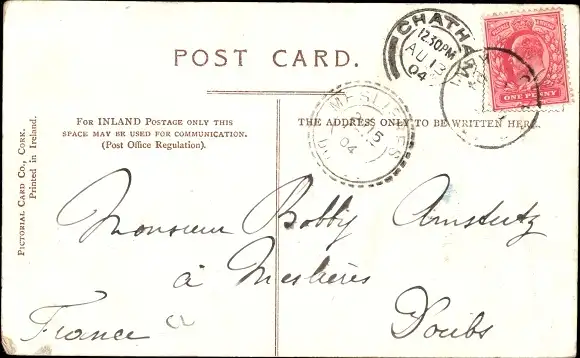 POST CARD.
CHATHAM
12 30 PM
AU 13
04
ONE PENNY
MESLIERES
15
04
FOR INLAND POSTAGE ONLY THIS
SPACE MAY BE USED FOR COMMUNICATION.
(Post Office Regulation).
THE ADDRESS ONLY TO BE WRITTEN HERE.
PICTORIAL CARD CO., CORK.
Printed in Ireland.
Monsieur Bobby Amstutz
à Meslières
Doubs
France